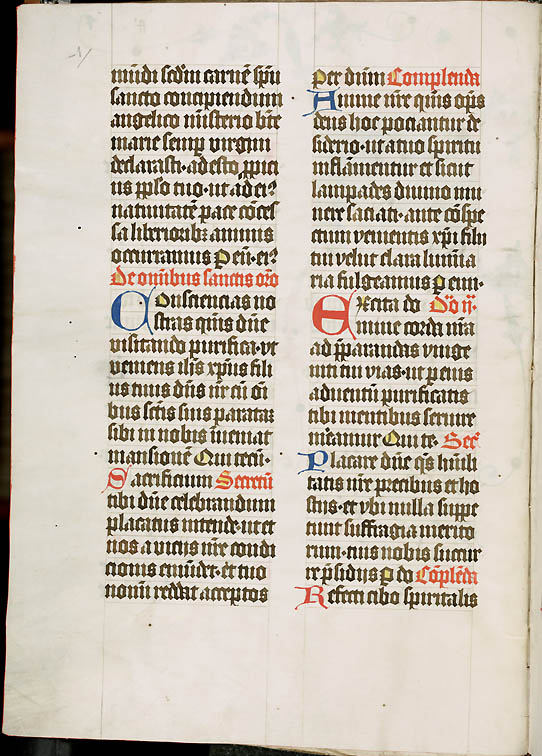 mūdi scd̄m carnē spū
sancto concipiendum
angelico misterio bt̄e
marie semp virgini
declarasti · adesto ppici
us pplo tuo · ut ad ei⁹
natiuitatē pace cōces
sa liberioribꝫ animis
occurramus P eū · ei⁹
De omībus sanctis oro
Consciencias no
stras qs̄ums dn̄e
visitando purifica · vt
veniens ihs xp̄us fili
us tuus dn̄s nr̄ cū oī
bus sctīs suis paratā
sibi in nobis inueniat
mansionē Qui tecū ·
Sacrificium Secretū
tibi dn̄e celebrandum
placatus intende · ut et
nos a vicijs nr̄e condi
cionis emūdet · et tuo
nomī reddat acceptos
Per dn̄m Complenda
Anime nr̄e qs̄ums op̄s
deus hoc pociantur de
siderio · ut a tuo spiritu
inflāmentur et sicut
lampades diuino mu
nere saciati · ante cōspe
ctum venientis xp̄i filii
tui velut clara lumīa
ria fulgeamus P eun ·
Excita do Dō ij ·
mine corda nr̄a
ad pparandas vnige
niti tui vias · ut p eius
aduentū purificatis
tibi mentibus seruire
m̄eamur Qui te · Sec̄
Placare dn̄e qs̄ hūili
tatis nr̄e precibus et ho
stijs · et vbi nulla suppe
tunt suffragia merito
rum · tuis nobis succur
re psidijs P do Cōplēda
Refecti cibo spiritalis